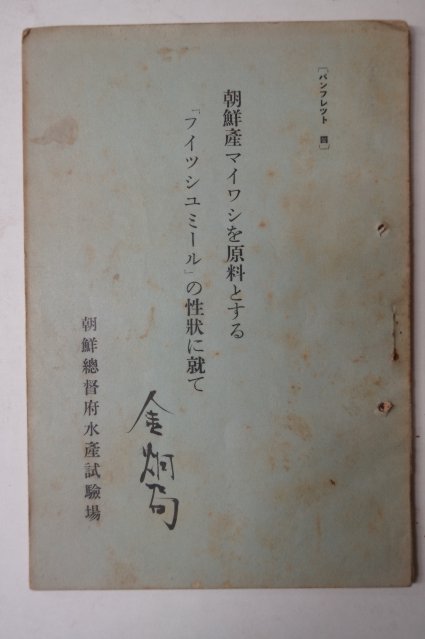 ［パンフレツト　四］
朝鮮産マイワシを原料とする
「フイツシユミール」の性狀に就て
朝鮮總督府水產試驗場